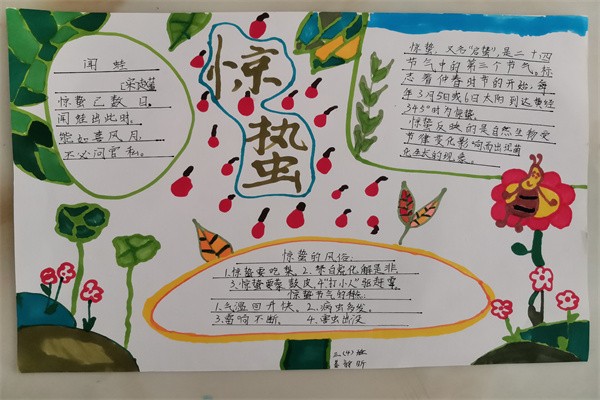 惊
蛰
闻蛙
宋赵蕃
惊蛰已数日。
闻蛙出此时.
能如喜风月.
不必问官私。
惊蛰,又名“启蛰”,是二十四
节气中的第三个节气。标
志着仲春时节的开始,每
年3月5日或6日太阳到达黄经
345°时为惊蛰。
惊蛰反映的是自然生物受
节律变化影响而出现萌
发生长的现象。
惊蛰的风俗:
1.惊蛰要吃梨、2.祭白虎化解是非
3.惊蛰要蒙鼓皮、4“打小人”驱赶霉。
惊蛰节气的
1.气温回升快、2.病虫多发、
不断、4.害虫出没
三(4)班